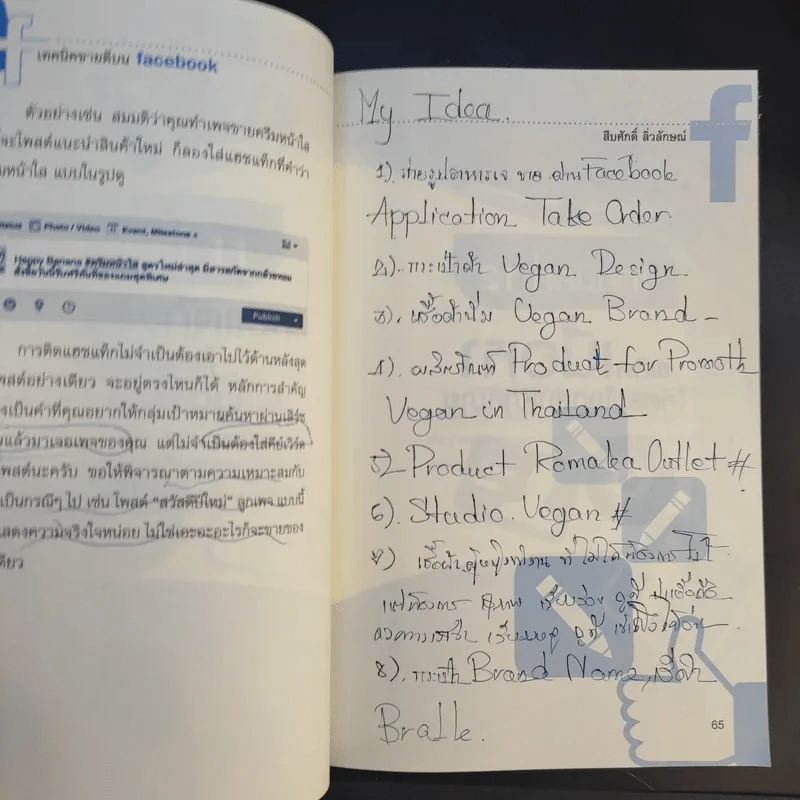 เทคนิคขายดีบน facebook
ตัวอย่างเช่น สมมติว่าคุณทำเพจขายครีมหน้าใส
จะโพสต์แนะนำสินค้าใหม่ ก็ลองใส่แฮชแท็กที่คำว่า
หน้าใส แบบในรูปดู
Photo / Video Event, Milestone +
Publish
การติดแฮชแท็กไม่จำเป็นต้องเอาไปไว้ด้านหลังสุด
โพสต์อย่างเดียว จะอยู่ตรงไหนก็ได้ หลักการสำคัญ
เป็นคำที่คุณอยากให้กลุ่มเป้าหมายค้นหาผ่านเสิร์ช
แล้วมาเจอเพจของคุณ แต่ไม่จำเป็นต้องใส่คีย์เวิร์ด
โพสต์นะครับ ขอให้พิจารณาตามความเหมาะสมกับ
เป็นกรณีๆ ไป เช่น โพสต์ “สวัสดีปีใหม่” ลูกเพจ แบบนี้
แสดงความจริงใจหน่อย ไม่ใช่เอะอะอะไรก็จะขายของ
เดียว
My Idea.
สืบศักดิ์ ลิ่วลักษณ์
1). ถ่ายรูปอาหารเจ ขาย ผ่าน Facebook
Application Take Order
2). กระเป๋าผ้า Vegan Design
3). เสื้อผ้า Vegan Brand -
4). ผลิตภัณฑ์ Product for Promoth
Vegan in Thailand
5) Product Romaka Outlet #
6). Studio. Vegan #
7) เสื้อผ้า ผู้หญิงทำงาน ที่ไม่ได้ต้องการ
แต่ต้องการ สุภาพ เรียบร้อย ดูดี
ดูดี
8). กระเป๋า Brand Name, เสื้อผ้า
Bralle.
65